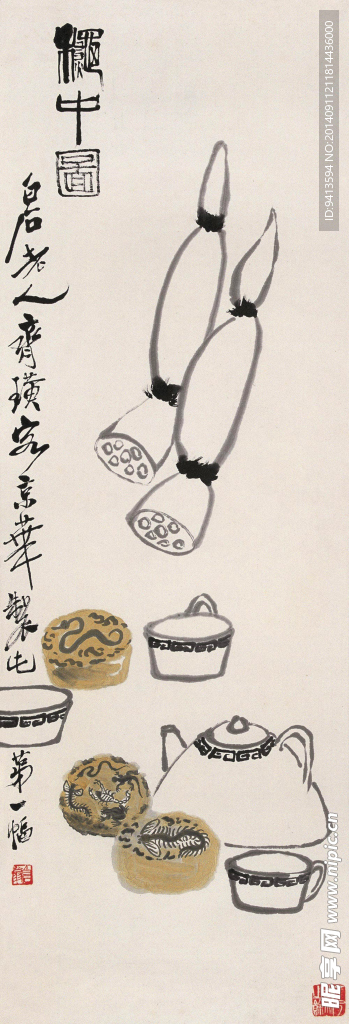 中图
白石老人齊璜客京華製此
第一幅
ID:9413594 NO:20140911211814436000
昵享网 www.nipic.cn